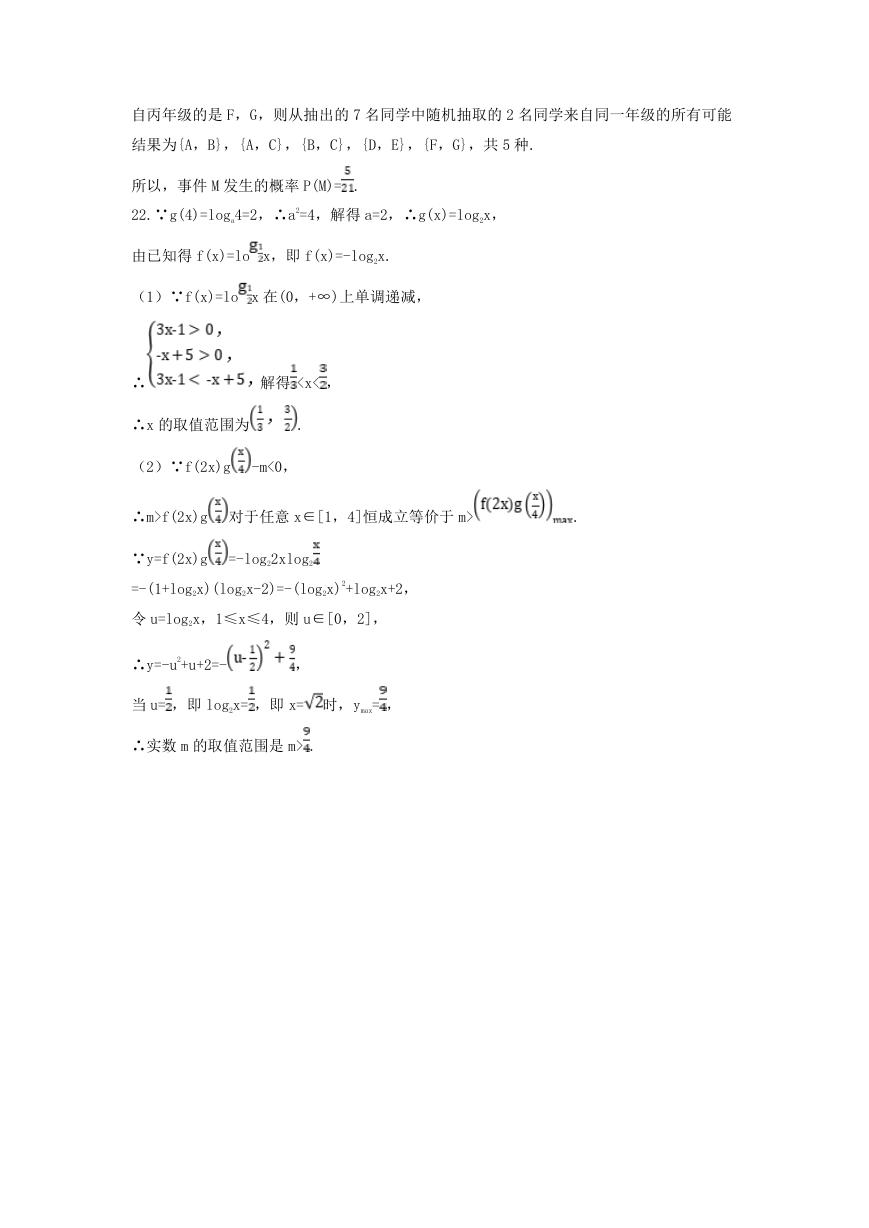 自丙年级的是 F，G，则从抽出的 7 名同学中随机抽取的 2 名同学来自同一年级的所有可能
结果为{A，B}，{A，C}，{B，C}，{D，E}，{F，G}，共 5 种.
所以，事件 M 发生的概率 P(M)=5/21.
22.∵g(4)=logₐ4=2，∴a²=4，解得 a=2，∴g(x)=log₂x，
由已知得 f(x)=log_{1/2}x，即 f(x)=-log₂x.
（1）∵f(x)=log_{1/2}x 在(0，+∞)上单调递减，
∴{3x-1＞0，
-x+5＞0，
3x-1＜-x+5，解得1/3<x<3/2，
∴x 的取值范围为(1/3，3/2).
（2）∵f(2x)g(x/4)-m<0，
∴m>f(2x)g(x/4)对于任意 x∈[1，4]恒成立等价于 m>(f(2x)g(x/4))max.
∵y=f(2x)g(x/4)=-log₂2xlog₂x/4
=-(1+log₂x)(log₂x-2)=-(log₂x)²+log₂x+2，
令 u=log₂x，1≤x≤4，则 u∈[0，2]，
∴y=-u²+u+2=-(u-1/2)²+9/4，
当 u=1/2，即 log₂x=1/2，即 x=√2时，ymax=9/4，
∴实数 m 的取值范围是 m>9/4.